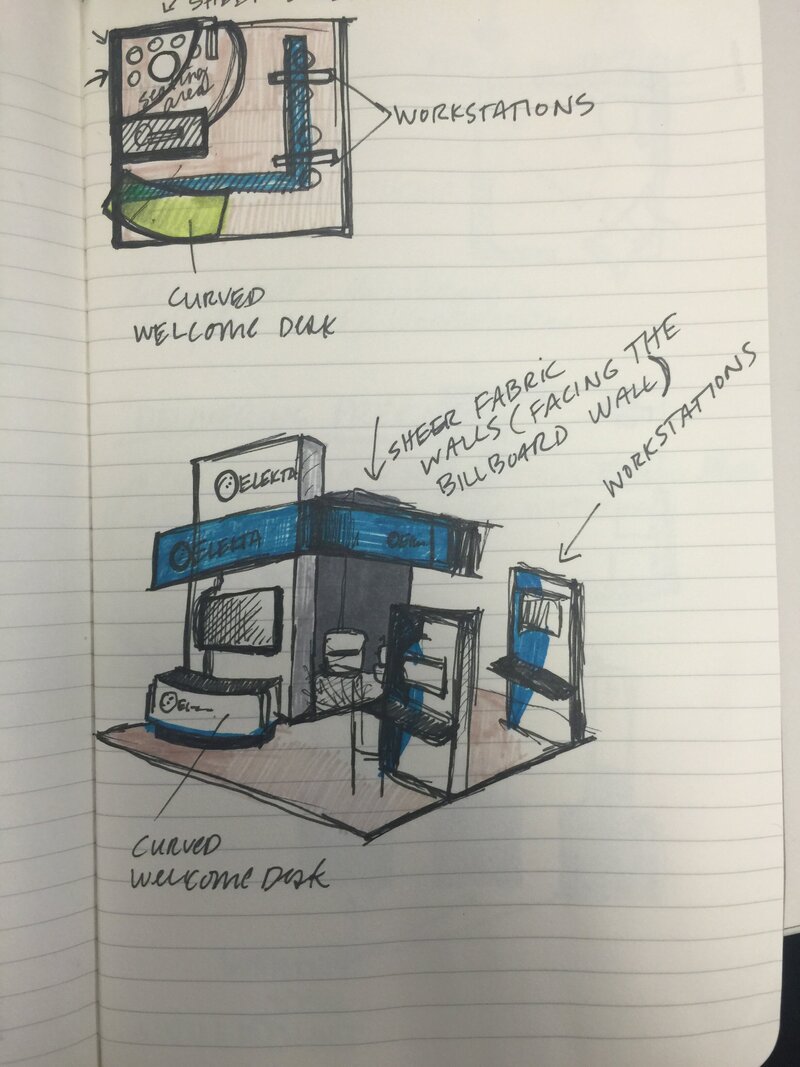 SHEER
seating
area
WORKSTATIONS
CURVED
WELCOME DESK
SHEER FABRIC
WALLS (FACING THE
BILLBOARD WALL)
WORKSTATIONS
ELEKTA
ELEKTA
CURVED
WELCOME DESK